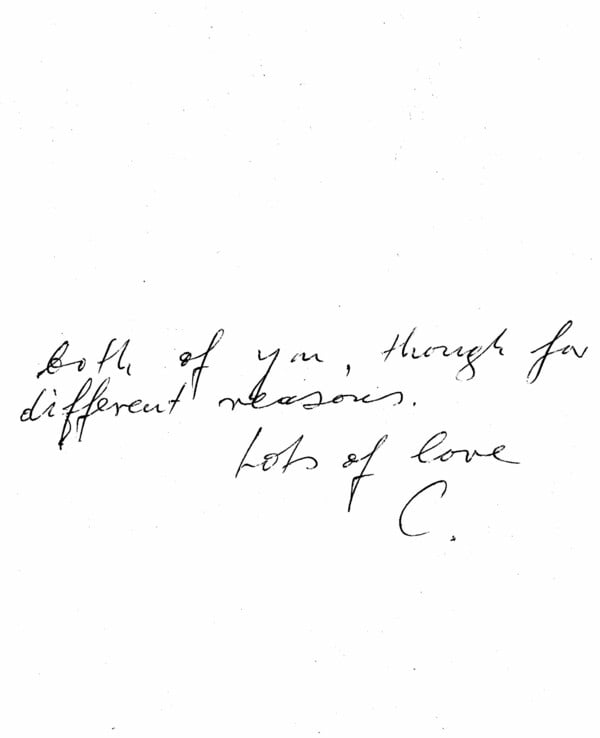 both of you, though for
different reasons.
Lots of love
C.